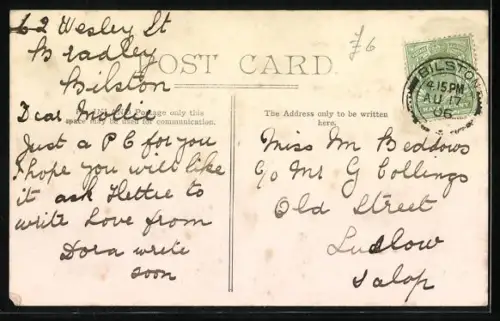 62 Wesley St
Bradley
Bilston
POST CARD.
£6
BILSTON
4.15 PM
AU 17
06
Dear Mollie
Postage only this
space may be used for communication.
Just a PC for you
I hope you will like
it ask Hettie to
write Love from
Dora write
soon
The Address only to be written
here.
Miss M Beddows
C/o Mr G Collings
Old Street
Ludlow
Salop